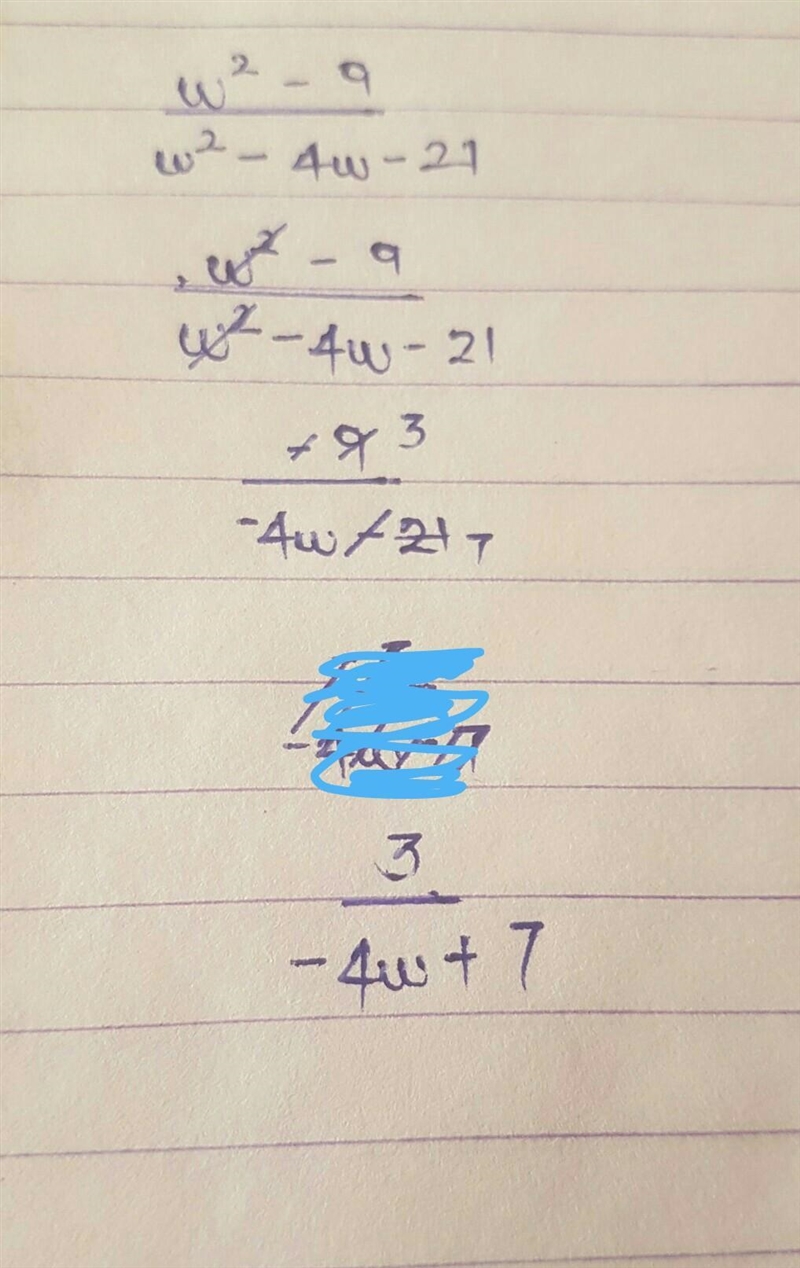 w² - 9
w² - 4w - 21
w² - 9
w² - 4w - 21
- 9 3
-4w - 21 7
3
-4w + 7